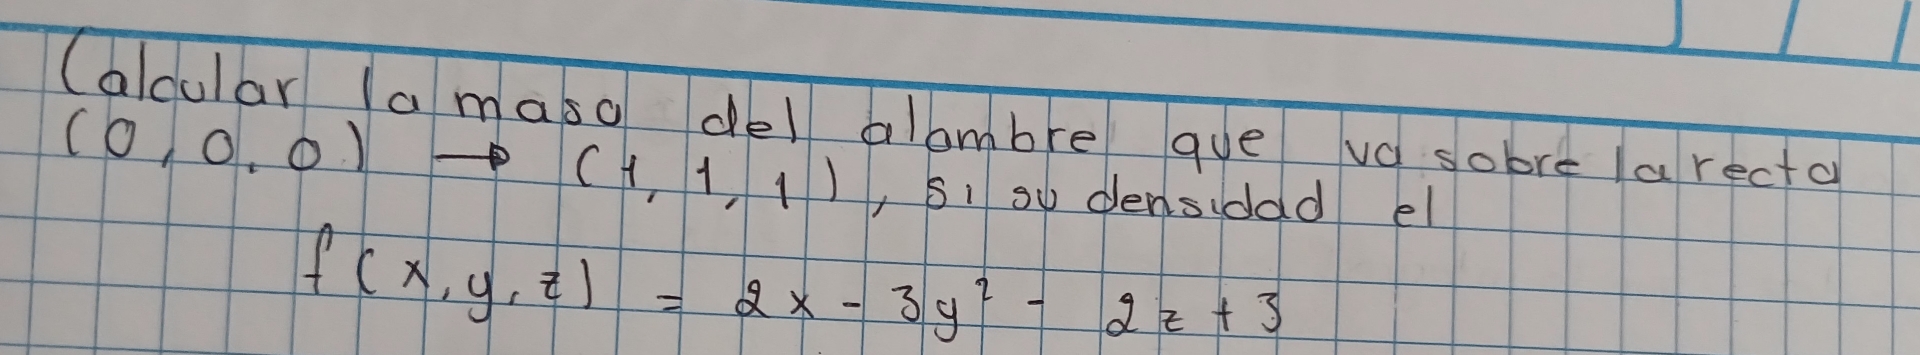 Calcular la masa del alambre que va sobre la recta
(0, 0, 0) → (1, 1, 1), si su densidad el
f(x, y, z) = 2x - 3y² - 2z + 3